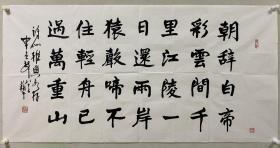 朝辞白帝
彩雲間千
里江陵一
日還兩岸
猿聲啼不
住輕舟已
過萬重山